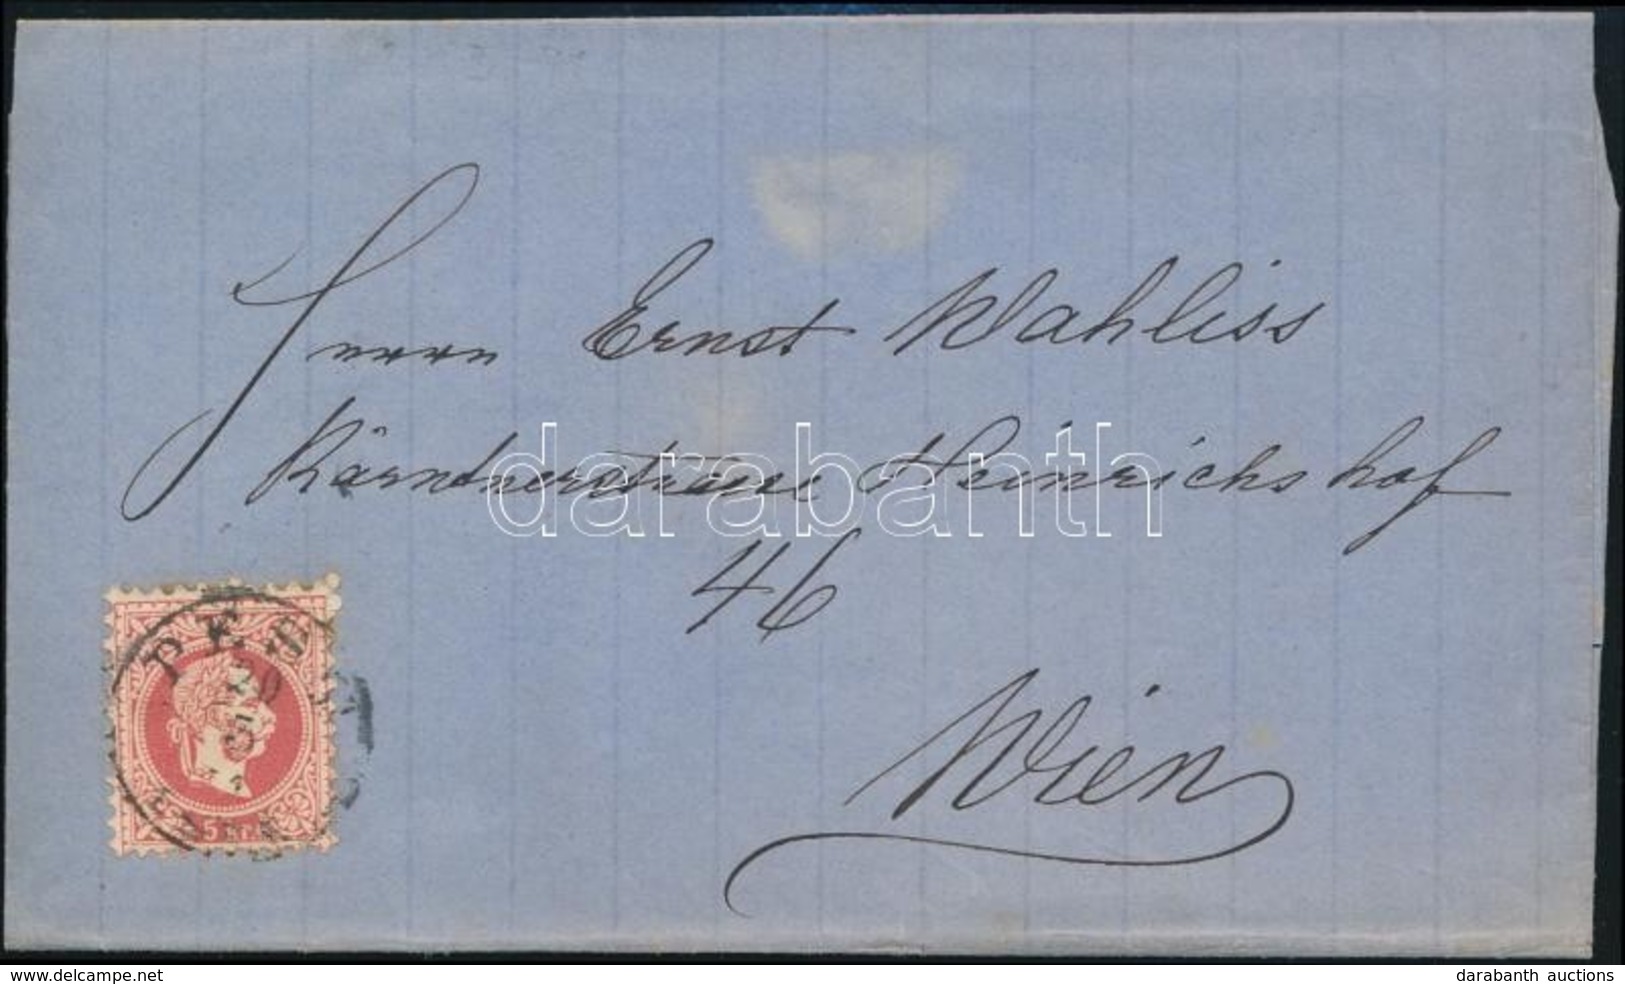 Herrn Ernst Wahliss
Kärntnerstrasse Heinrichshof
46
Wien
PEST
20
5 KR.
darabanth
www.delcampe.net
darabanth auctions